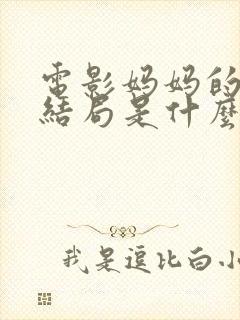 電影妈妈的
結局是什麼
我是逗比白小